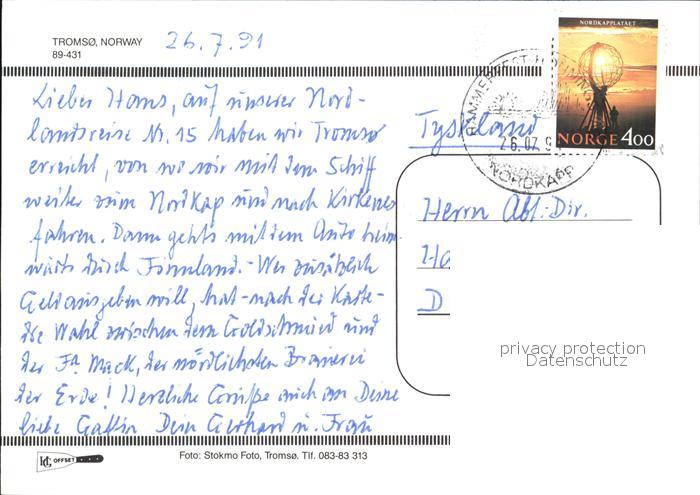 TROMSØ, NORWAY
89-431
26.7.91
NORDKAPPLATÅET
NORGE 4.00
HAMMERFEST
26.07.9
NORDKAPP
Lieber Hans, auf unserer Nord-
landsreise Nr. 15 haben wir Tromsø
erreicht, von wo wir mit dem Schiff
weiter zum Nordkap und nach Kirkenes
fahren. Dann gehts mit dem Auto heim-
wärts durch Finnland. - Wer zusätzlich
Geld ausgeben will, hat - nach der Karte -
die Wahl zwischen dem Goldschmied und
der Fa Mack, der nördlichsten Brauerei
der Erde! Herzliche Grüße auch an Deine
liebe Gattin Dein Gerhard u. Frau
Tyskland
Herrn Abt.-Dir.
D
privacy protection
Datenschutz
OFFSET
Foto: Stokmo Foto, Tromsø. Tlf. 083-83 313